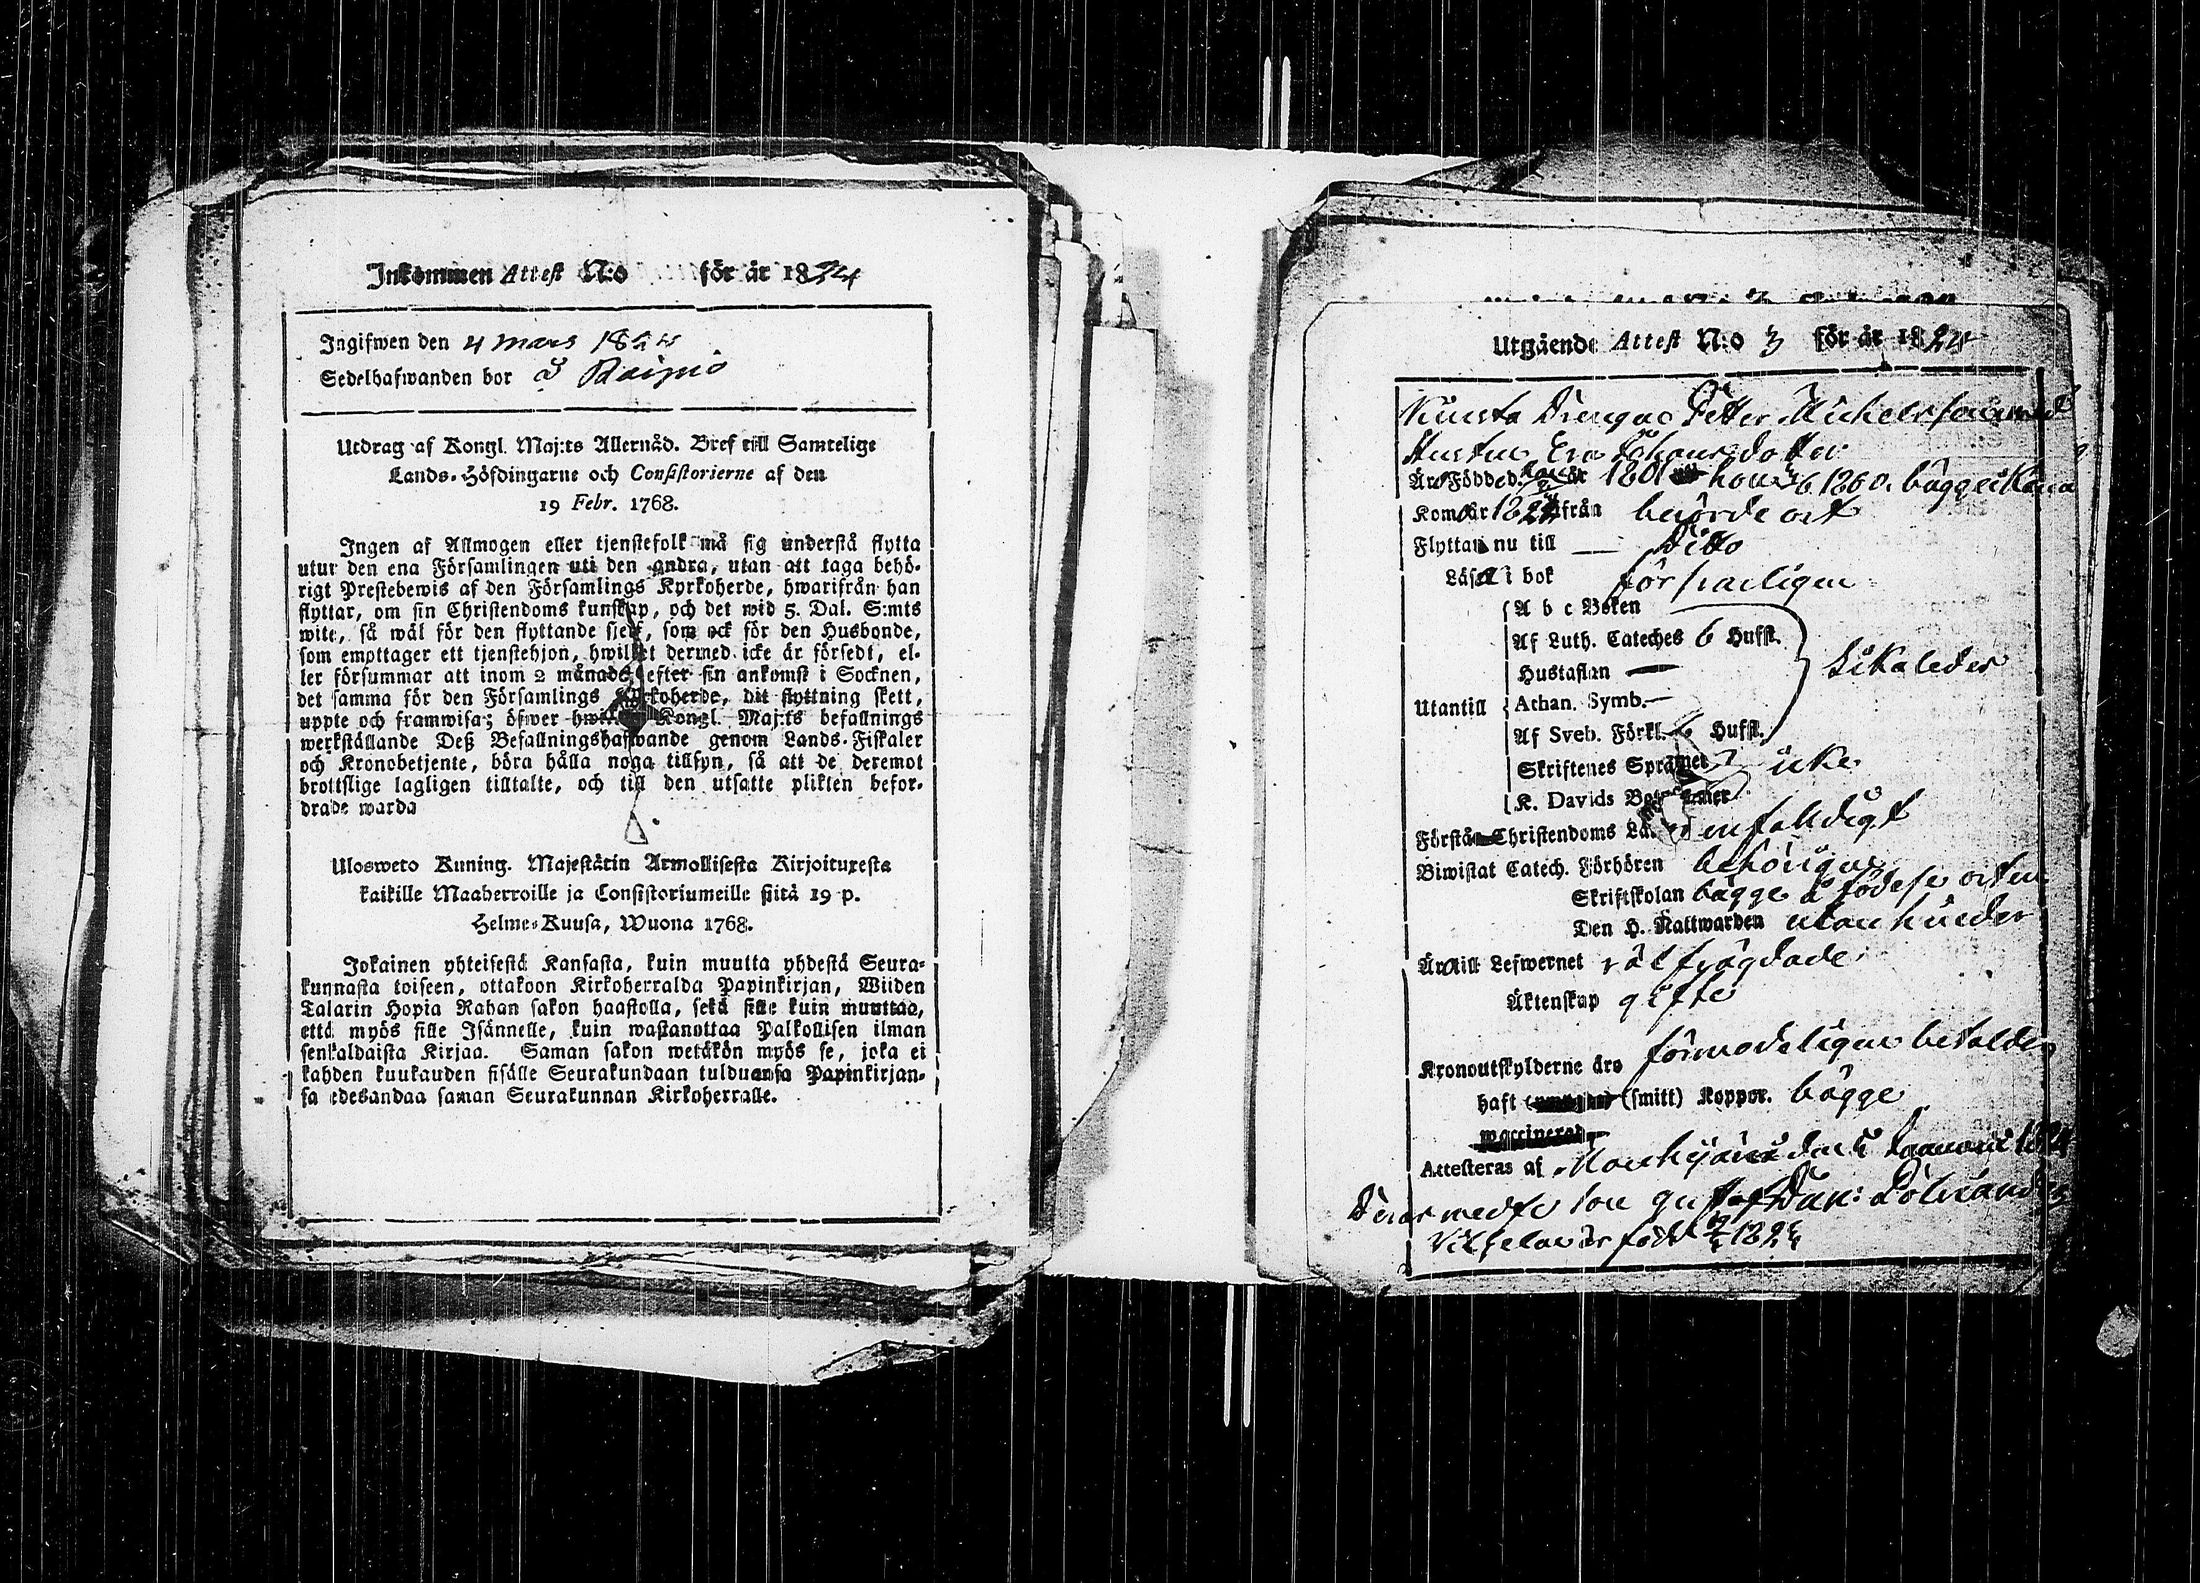 Inkommen Attest N:o för år 1824
Ingifwen den 4 mars 1824
Sedelhafwanden bor å Raipio
Utdrag af Kongl. Maj:ts Allernåd. Bref till Samtelige
Lands-Höfdingarne och Consistorierne af den
19 Febr. 1768.
Ingen af Allmogen eller tjenstefolk må sig understå flytta
utur den ena Församlingen uti den andra, utan att taga behö-
rigt Prestebewis af den Församlings Kyrkoherde, hwarifrån han
flyttar, om sin Christendoms kunskap, och det wid 5. Dal. S:mts
wite, så wäl för den flyttande sjelf, som ock för den Husbonde,
som empttager ett tjenstehjon, hwilket dermed icke är försedt, el-
ler försummar att inom 2 månader efter sin ankomst i Socknen,
det samma för den Församlings Kyrkoherde, dit flyttning skett,
uppte och framwisa; öfwer Kongl. Maj:ts befallnings
werkställande Deß Befallningshafwande genom Lands-Fiskaler
och Kronobetjente, böra hålla noga tillsyn, så att de deremot
brottslige lagligen tilltalte, och till den utsatte plikten befor-
drade warda
Ulosweto Kuning. Majestätin Armollisesta Kirjoituxesta
kaikille Maaherroille ja Consistoriumeille siitä 19 p.
Helme-Kuusa, Wuona 1768.
Jokainen yhteisestä Kansasta, kuin muutta yhdestä Seura-
kunnasta toiseen, ottakoon Kirkoherralda Papinkirjan, Wiiden
Talarin Hopia Rahan sakon haastolla, sekä sille kuin muuttaa,
että myös sille Isännelle, kuin wastanottaa Palkollisen ilman
senkaldaista Kirjaa. Saman sakon wetäkön myös se, joka ei
kahden kuukauden sisälle Seurakundaan tulduansa Papinkirjan-
sa edesandaa saman Seurakunnan Kirkoherralle.
Utgående Attest N:o 3 för år 1824
Drengen Petter Michelsson med
Hustru Eva Johansdotter
Äro Födde d. år 1801 hon 1800. bägge i
Kom år 1824 från berörde ort
Flyttar nu till Ditto
Läser i bok försvarligen
A b c Boken
Af Luth. Cateches 6 Hufst.
Hustaflan likaledes
Utantill Athan. Symb.
Af Sveb. Förkl. 6 Hufst.
Skriftenes Språket icke
K. Davids
Förstår Christendoms Lä. enfalldigt
Biwistat Catech. Förhören behörigen
Skriftskolan bägge å födelse orten
Den H. Nattwarden utan hinder
Äro till Lefwernet välfrägdade
Äktenskap gifte
Kronoutskylderne äro förmodeligen betalde
haft (smitt) Koppor. bägge
waccinerad
Attesteras af den 5 1824
Deras medf. son Gustaf
född 1824